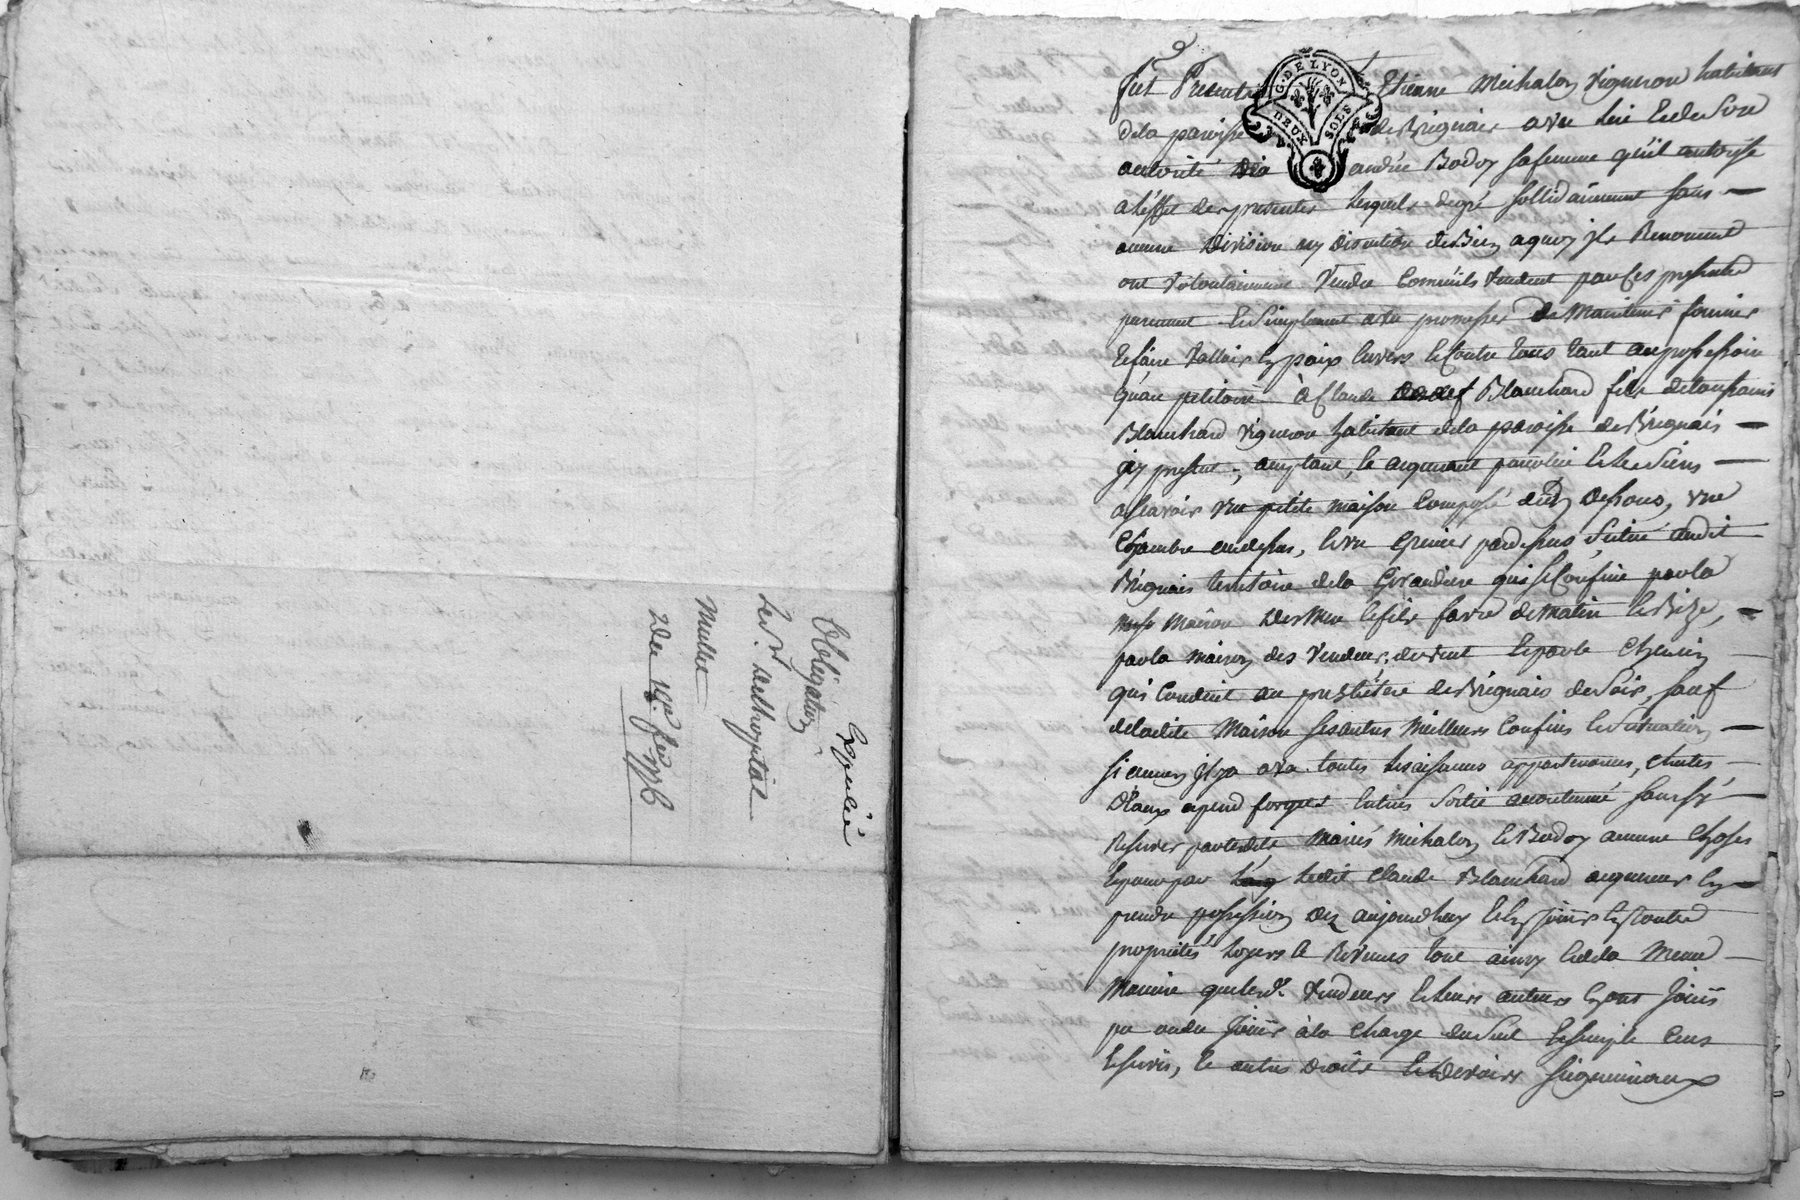 Expediée
Obligation
Led. r. authoyrtal
Mullet
Du 19e. fer. 1776
G. DE LYON
DEUX SOLS
Fut Present Etienne Michalon Vigneron habitant
dela paroisse de Brignais avec lui Et de Son
autorité andrée Bodoy sa femme qu'il autorise
a leffet des presentes lesquels degré sollidairement sans
aucune Division ny Discution de Biens aquoy jls Renoncent
ont Volontairement Vendu Comm'ils Vendent par Ces presentes
purement Et Simplement avec promesses de Maintenir fournir
Et faire Valloir En paix Envers Et Contre tous tant au possessoire
qu'au petitoire à Claude Blanchard fils de
Blanchard Vigneron habitant dela paroisse de Brignais
jcy present, acceptant, et acquerant pour lui Et les Siens
asçavoir une petite maison Composé d'un Dessous, une
Chambre audessus, Et un Grenier par dessus, Scitué audit
Brignais territoire dela Girandiere qui se Confine par la
maison de Matin Et Bize,
par la maison des Vendeurs, de Vent Et par le Chemin
qui Conduit au presbitére de Brignais de Soir, sauf
deladite Maison ses autres Meilleurs Confins Et Situation
si aucuns jl y a avec toutes Ses aisances appartenances, Chutes
D'Eaux Entrées Sortie accoutumé sans s'y
Reserver par lesdits Mariés Michalon Et Bodoy aucune Choses
Et pour par Ledit Claude Blanchard acquereur En
prendre possession Des aujourdhuy Et En jouir En toutes
proprietés loyers Et Revenus tout ainsy Et de la Meme
Maniere que lesd. Vendeurs Et leurs auteurs En ont joüis
pu ou du joüir à la Charge du Seul Et simple Cens
Et servis, Et autres droits Et Devoirs seigneuriaux